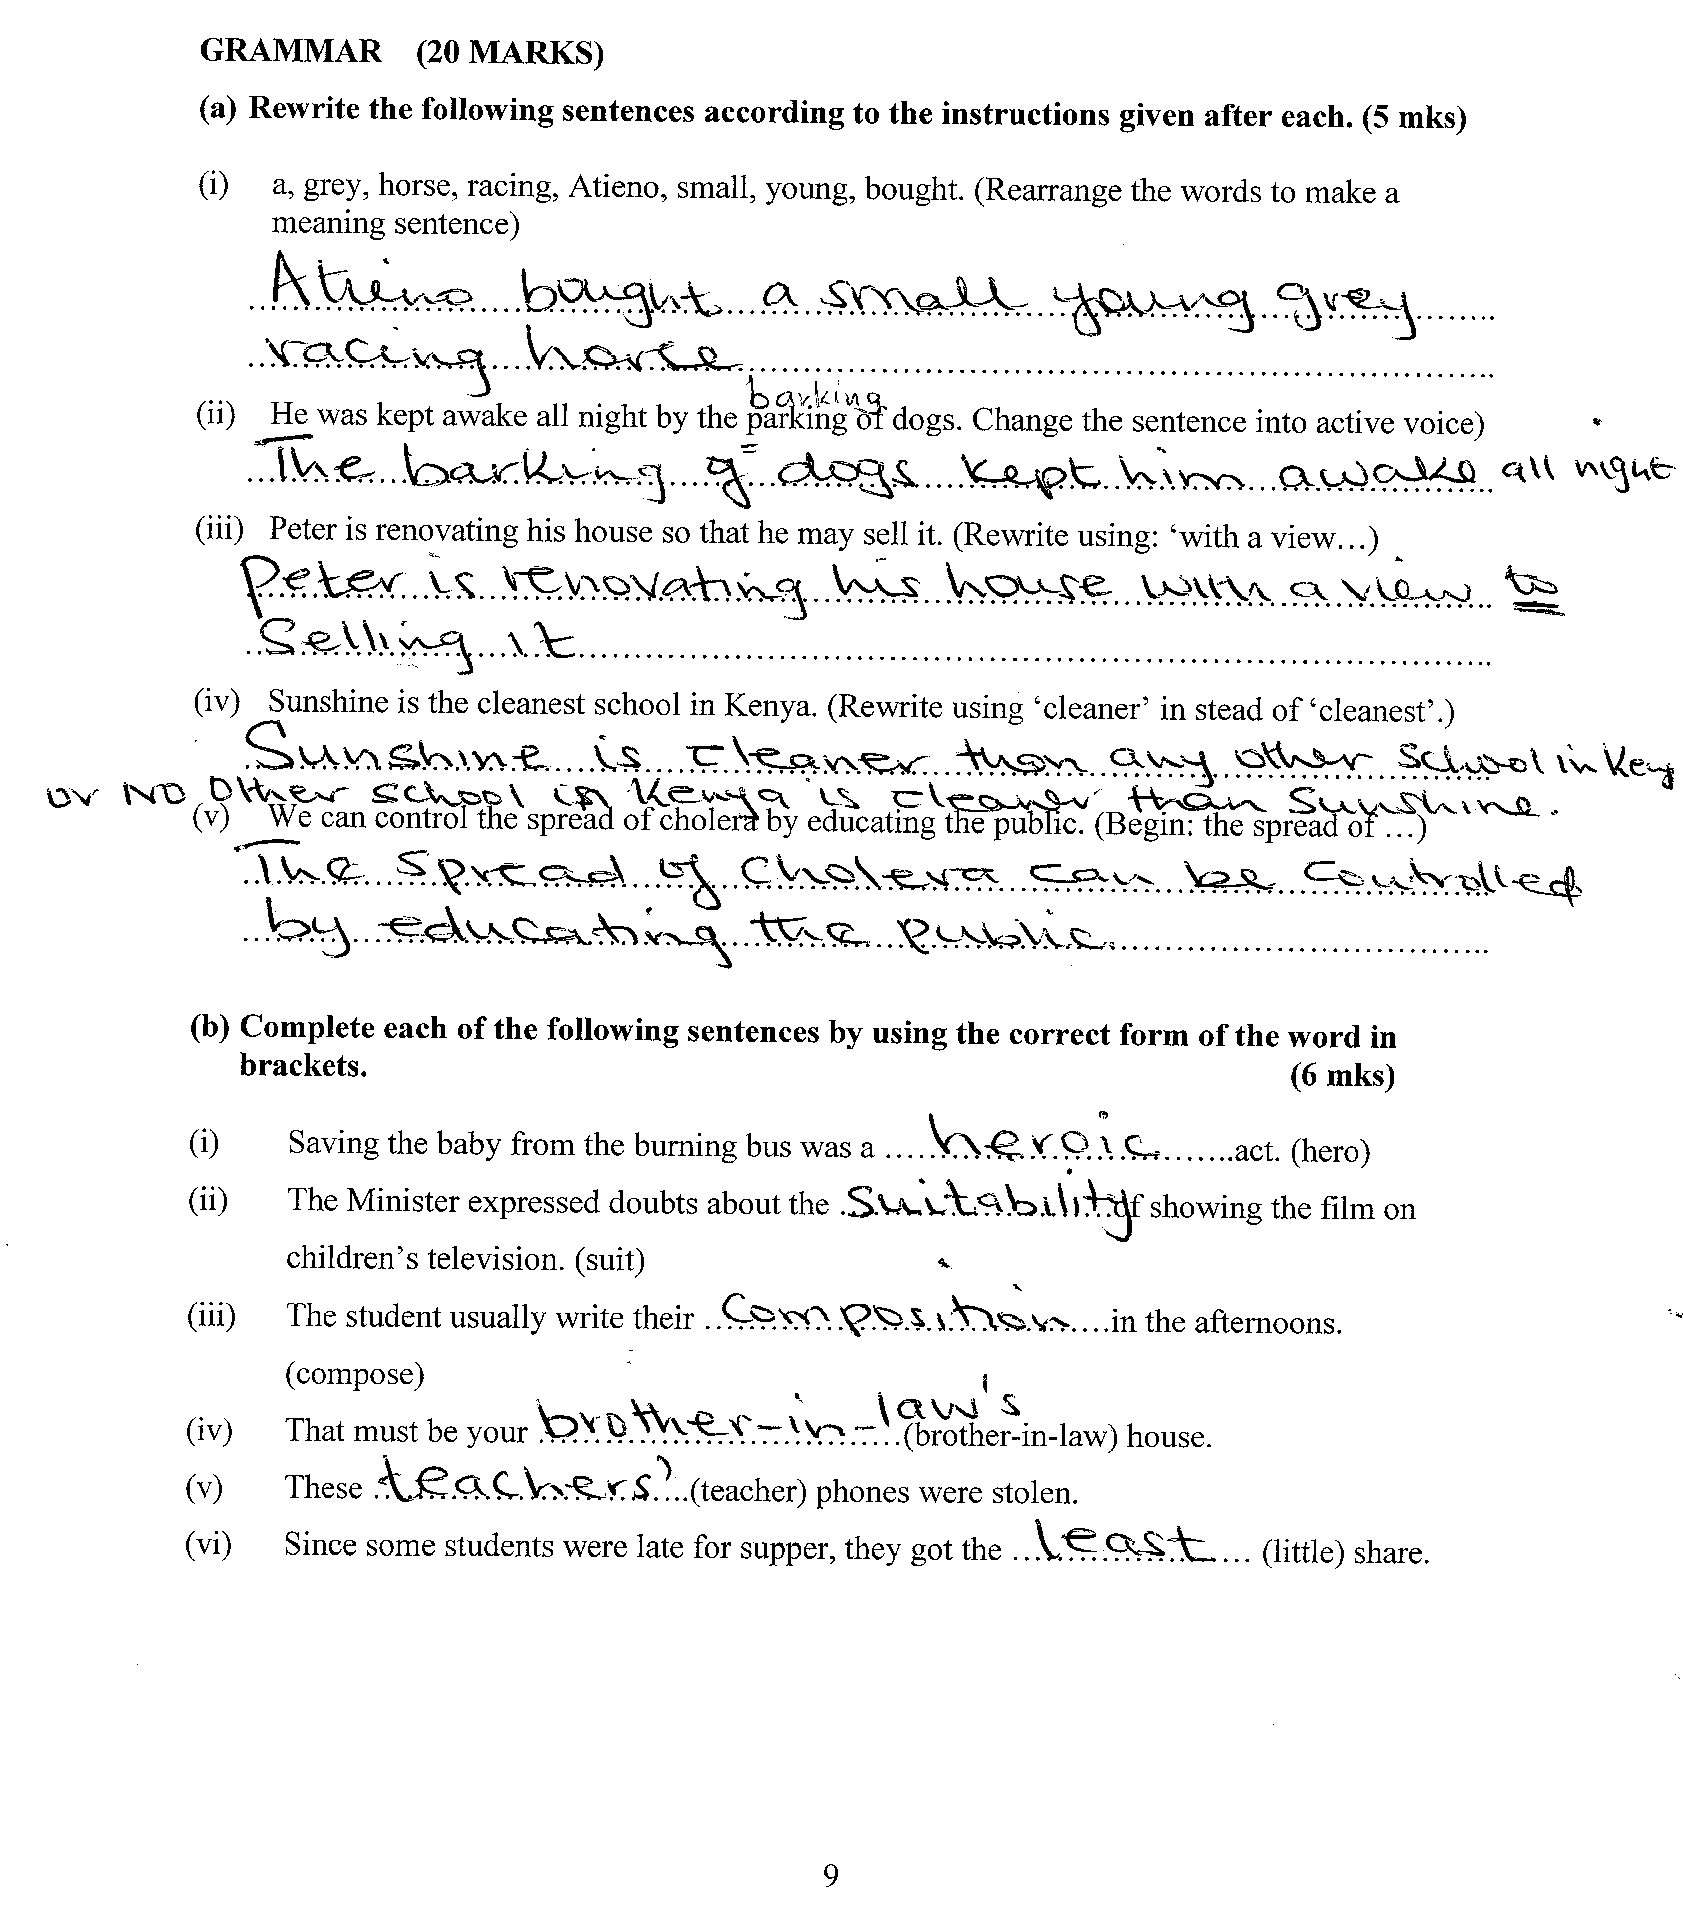 GRAMMAR (20 MARKS)
(a) Rewrite the following sentences according to the instructions given after each. (5 mks)
(i) a, grey, horse, racing, Atieno, small, young, bought. (Rearrange the words to make a
meaning sentence)
Atieno bought a small young grey
racing horse
barking
(ii) He was kept awake all night by the parking of dogs. Change the sentence into active voice)
The barking of dogs kept him awake all night
(iii) Peter is renovating his house so that he may sell it. (Rewrite using: ‘with a view…)
Peter is renovating his house with a view to
Selling it
(iv) Sunshine is the cleanest school in Kenya. (Rewrite using ‘cleaner’ in stead of ‘cleanest’.)
Sunshine is cleaner than any other school in Keny
or No Other school in Kenya is cleaner than Sunshine.
(v) We can control the spread of cholera by educating the public. (Begin: the spread of …)
The spread of Cholera can be controlled
by educating the public.
(b) Complete each of the following sentences by using the correct form of the word in
brackets. (6 mks)
(i) Saving the baby from the burning bus was a .....heroic........act. (hero)
(ii) The Minister expressed doubts about the .suitability of showing the film on
children’s television. (suit)
(iii) The student usually write their ..Composition....in the afternoons.
(compose)
(iv) That must be your brother-in-law's (brother-in-law) house.
(v) These ..teachers'...(teacher) phones were stolen.
(vi) Since some students were late for supper, they got the ...least.... (little) share.
9